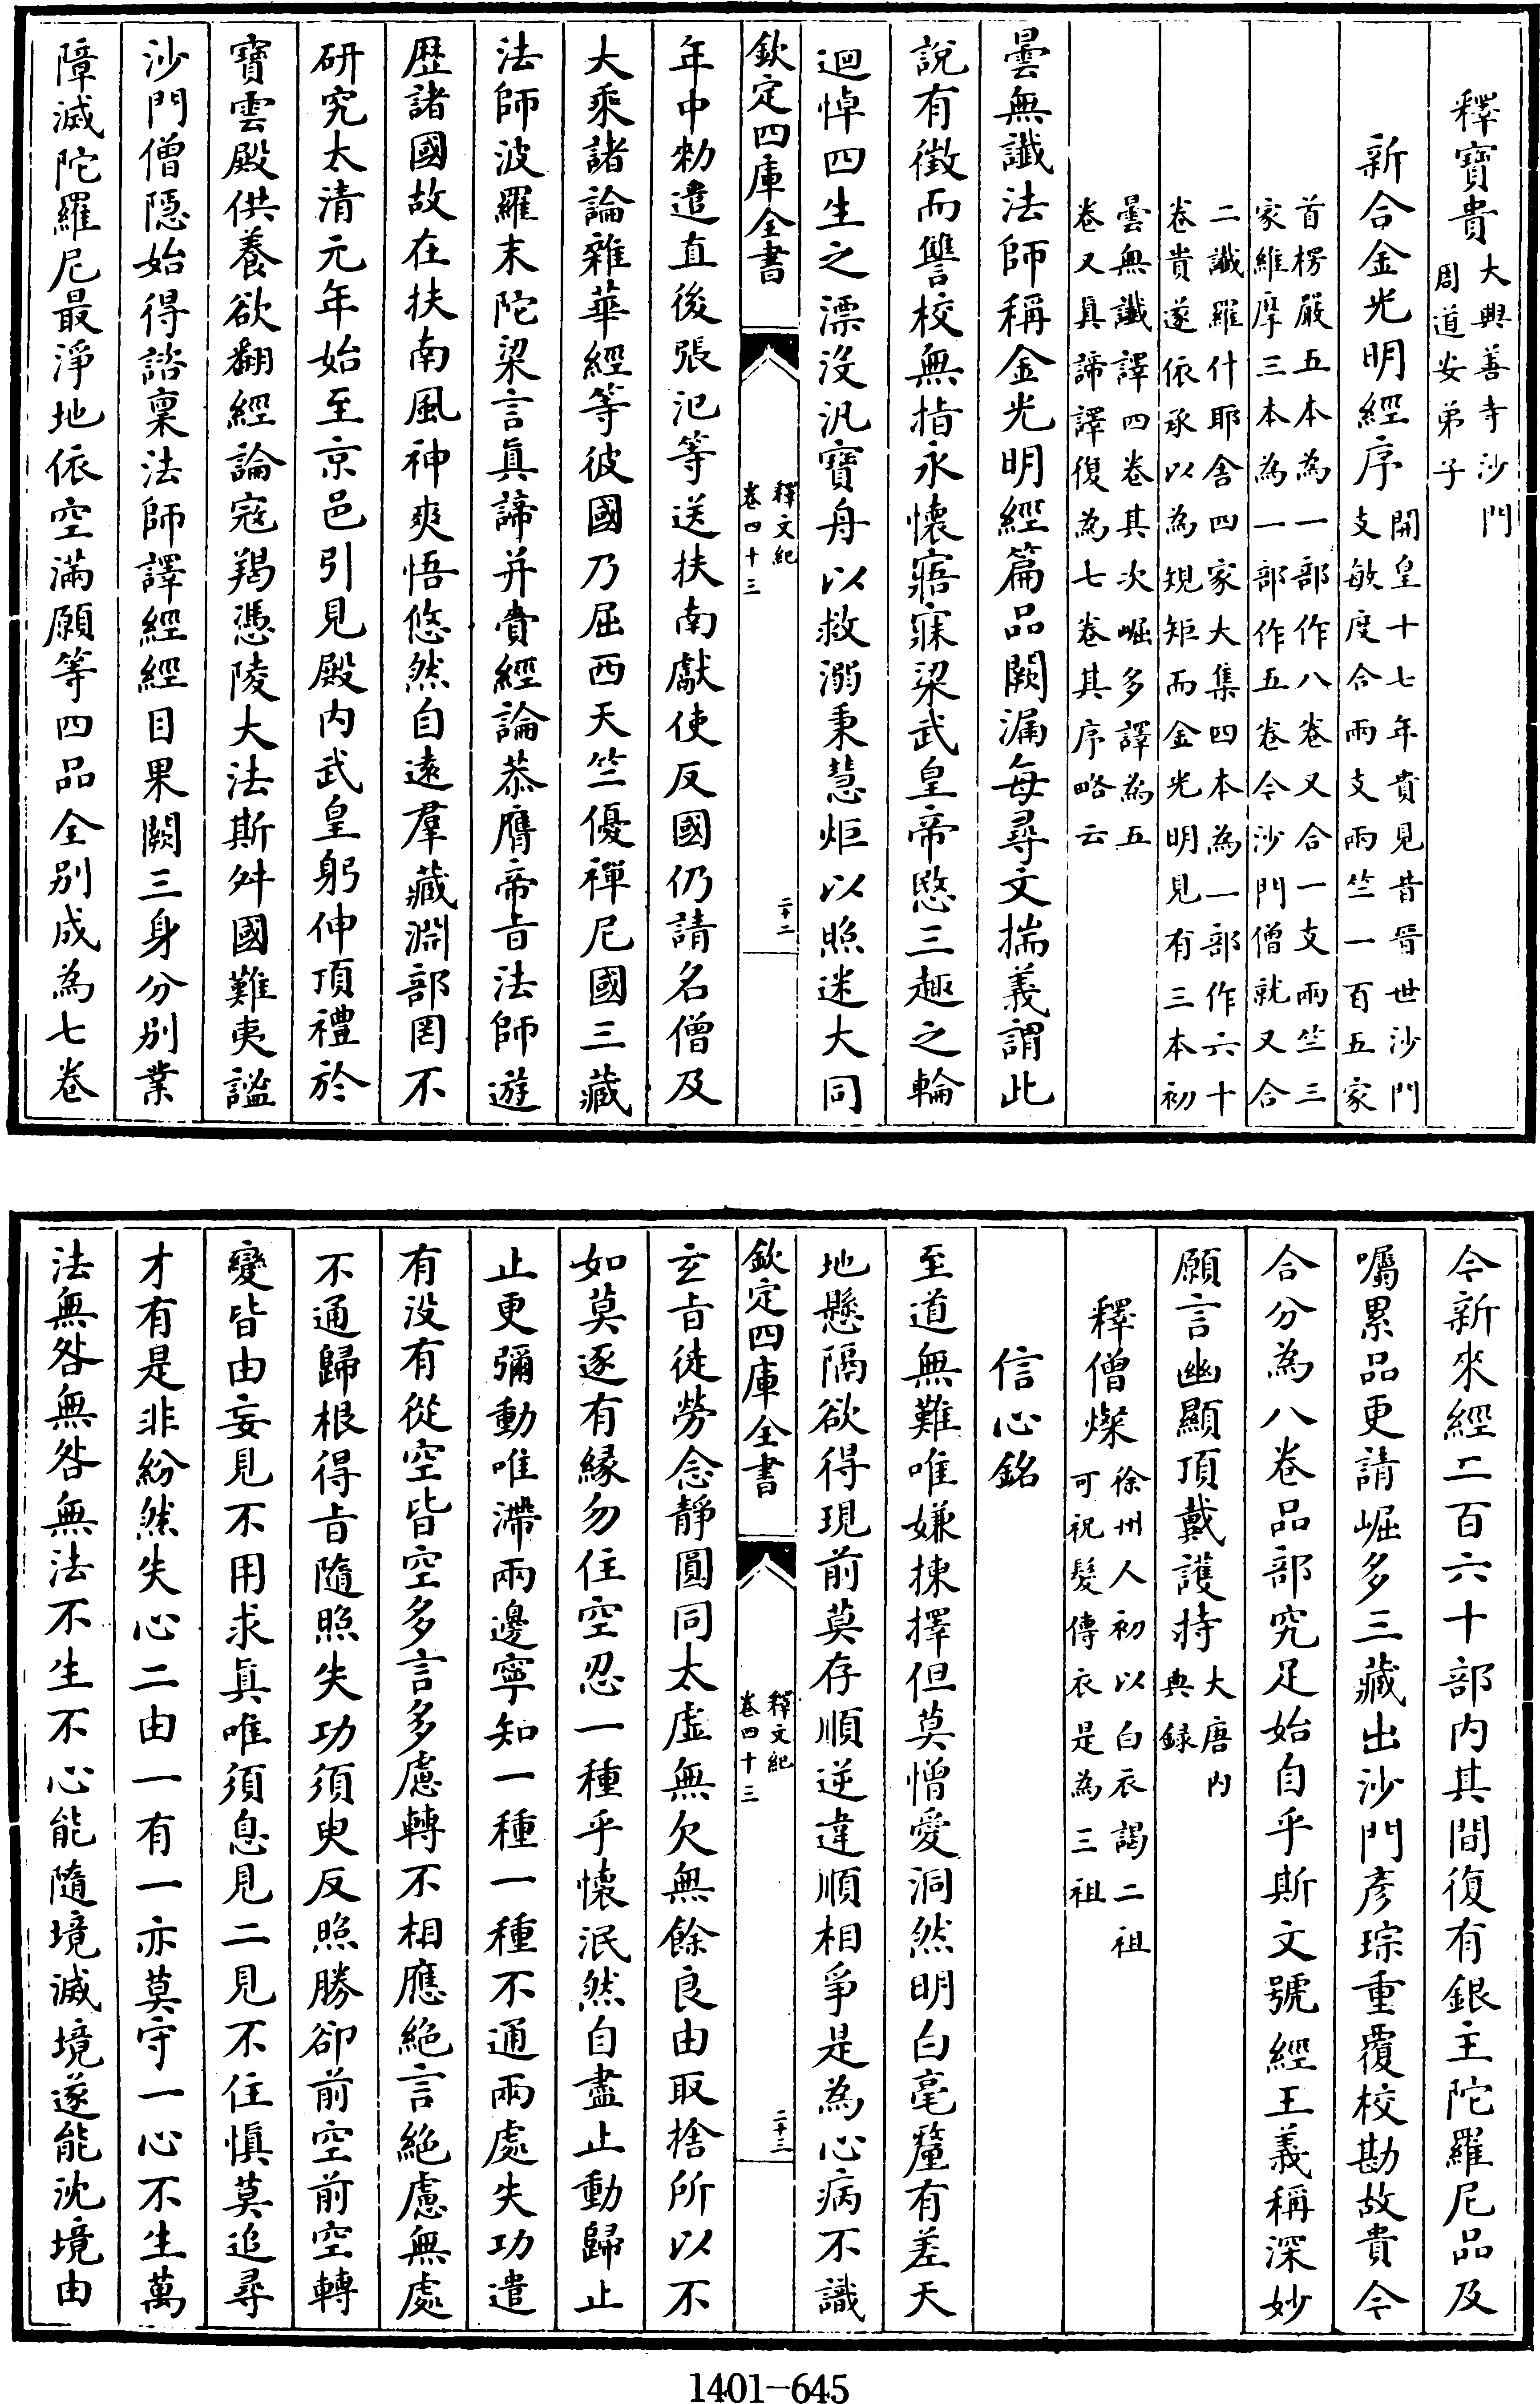 釋寶貴大興善寺沙門周道安弟子
新合金光明經序開皇十七年貴見昔晉世沙門支敏度合兩支兩竺一百五家
首楞嚴五本為一部作八卷又合一支兩竺三家維摩三本為一部作五卷今沙門僧就又合
二讖羅什耶舍四家大集四本為一部作六十卷貴遂依承以為規矩而金光明見有三本初
曇無讖譯四卷其次崛多譯為五卷又真諦譯復為七卷其序略云
曇無讖法師稱金光明經篇品闕漏每尋文揣義謂此
說有徵而讐校無指永懷寤寐梁武皇帝愍三趣之輪
迴悼四生之漂沒汎寶舟以救溺秉慧炬以照迷大同
欽定四庫全書 釋文紀卷四十三 二十二
年中勑遣直後張氾等送扶南獻使反國仍請名僧及
大乘諸論雜華經等彼國乃屈西天竺優禪尼國三藏
法師波羅末陀梁言真諦并賷經論恭膺帝旨法師遊
歴諸國故在扶南風神爽悟悠然自遠羣藏淵部罔不
研究太清元年始至京邑引見殿内武皇躬伸頂禮於
寶雲殿供養欲翻經論寇羯憑陵大法斯舛國難夷謐
沙門僧隠始得諮稟法師譯經經目果闕三身分别業
障滅陀羅尼最淨地依空滿願等四品全别成為七卷
今新來經二百六十部内其間復有銀主陀羅尼品及
囑累品更請崛多三藏出沙門彦琮重覆校勘故貴今
合分為八卷品部究足始自乎斯文號經王義稱深妙
願言幽顯頂戴護持大唐内典録
釋僧燦徐州人初以白衣謁二祖可祝髮傳衣是為三祖
信心銘
至道無難唯嫌揀擇但莫憎愛洞然明白毫釐有差天
地懸隔欲得現前莫存順逆違順相爭是為心病不識
欽定四庫全書 釋文紀卷四十三 二十三
玄旨徒勞念靜圓同太虛無欠無餘良由取捨所以不
如莫逐有縁勿住空忍一種乎懷泯然自盡止動歸止
止更彌動唯滯兩邊寧知一種一種不通兩處失功遣
有没有從空皆空多言多慮轉不相應絶言絶慮無處
不通歸根得旨隨照失功須臾反照勝卻前空前空轉
變皆由妄見不用求真唯須息見二見不住慎莫追尋
才有是非紛然失心二由一有一亦莫守一心不生萬
法無咎無咎無法不生不心能隨境滅境遂能沈境由
1401-645